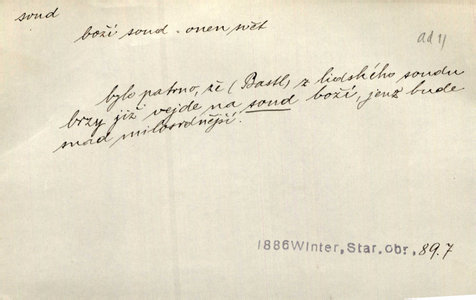 soud
boží soud - onen svět
ad 1)
bylo patrno, že (Bastl) z lidského soudu
brzy již vejde na soud boží, jenž bude
snad milosrdnější.
1886Winter,Star,obr,89.7